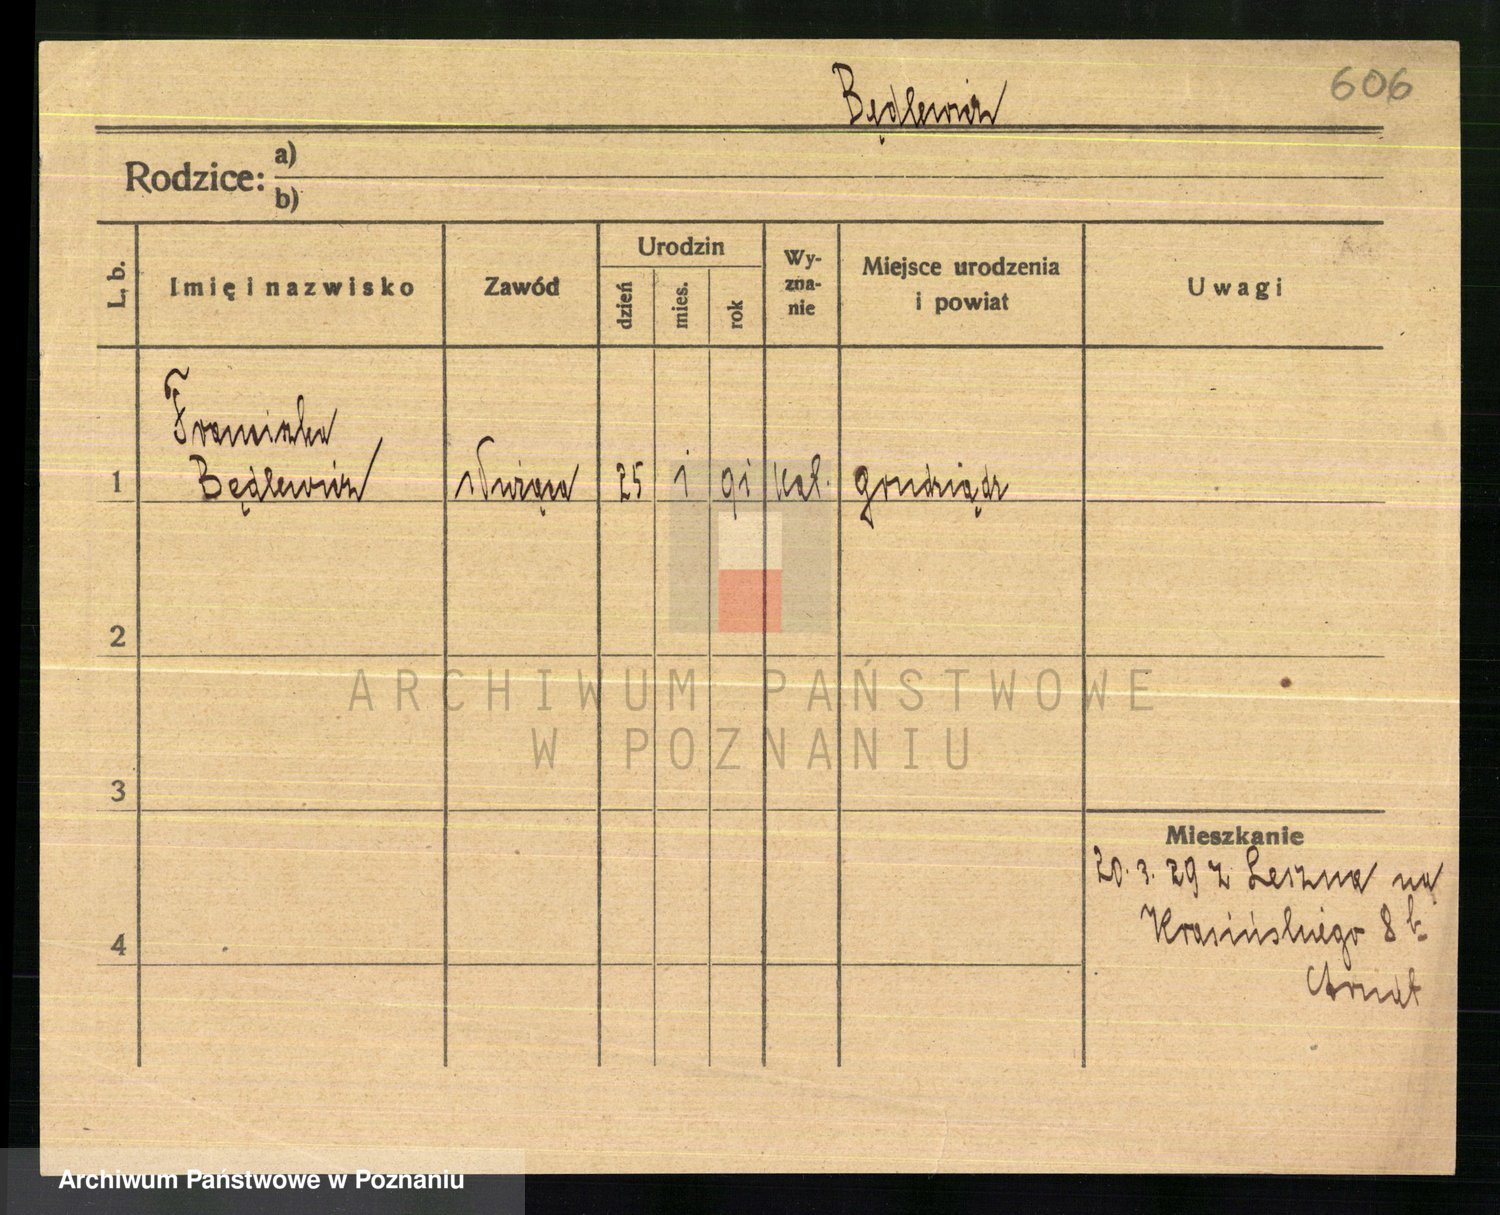 Będlewicz
606
Rodzice: a)
b)
L. b.
Imię i nazwisko
Zawód
Urodzin
dzień
mies.
rok
Wy-
zna-
nie
Miejsce urodzenia
i powiat
Uwagi
Franciszka
1 Będlewicz służąca 25 1 91 kat. Grudziądz
2
ARCHIWUM PAŃSTWOWE
W POZNANIU
3
Mieszkanie
20. 3. 29 z Leszna na
Krasińskiego 8 b.
4
Arndt
Archiwum Państwowe w Poznaniu